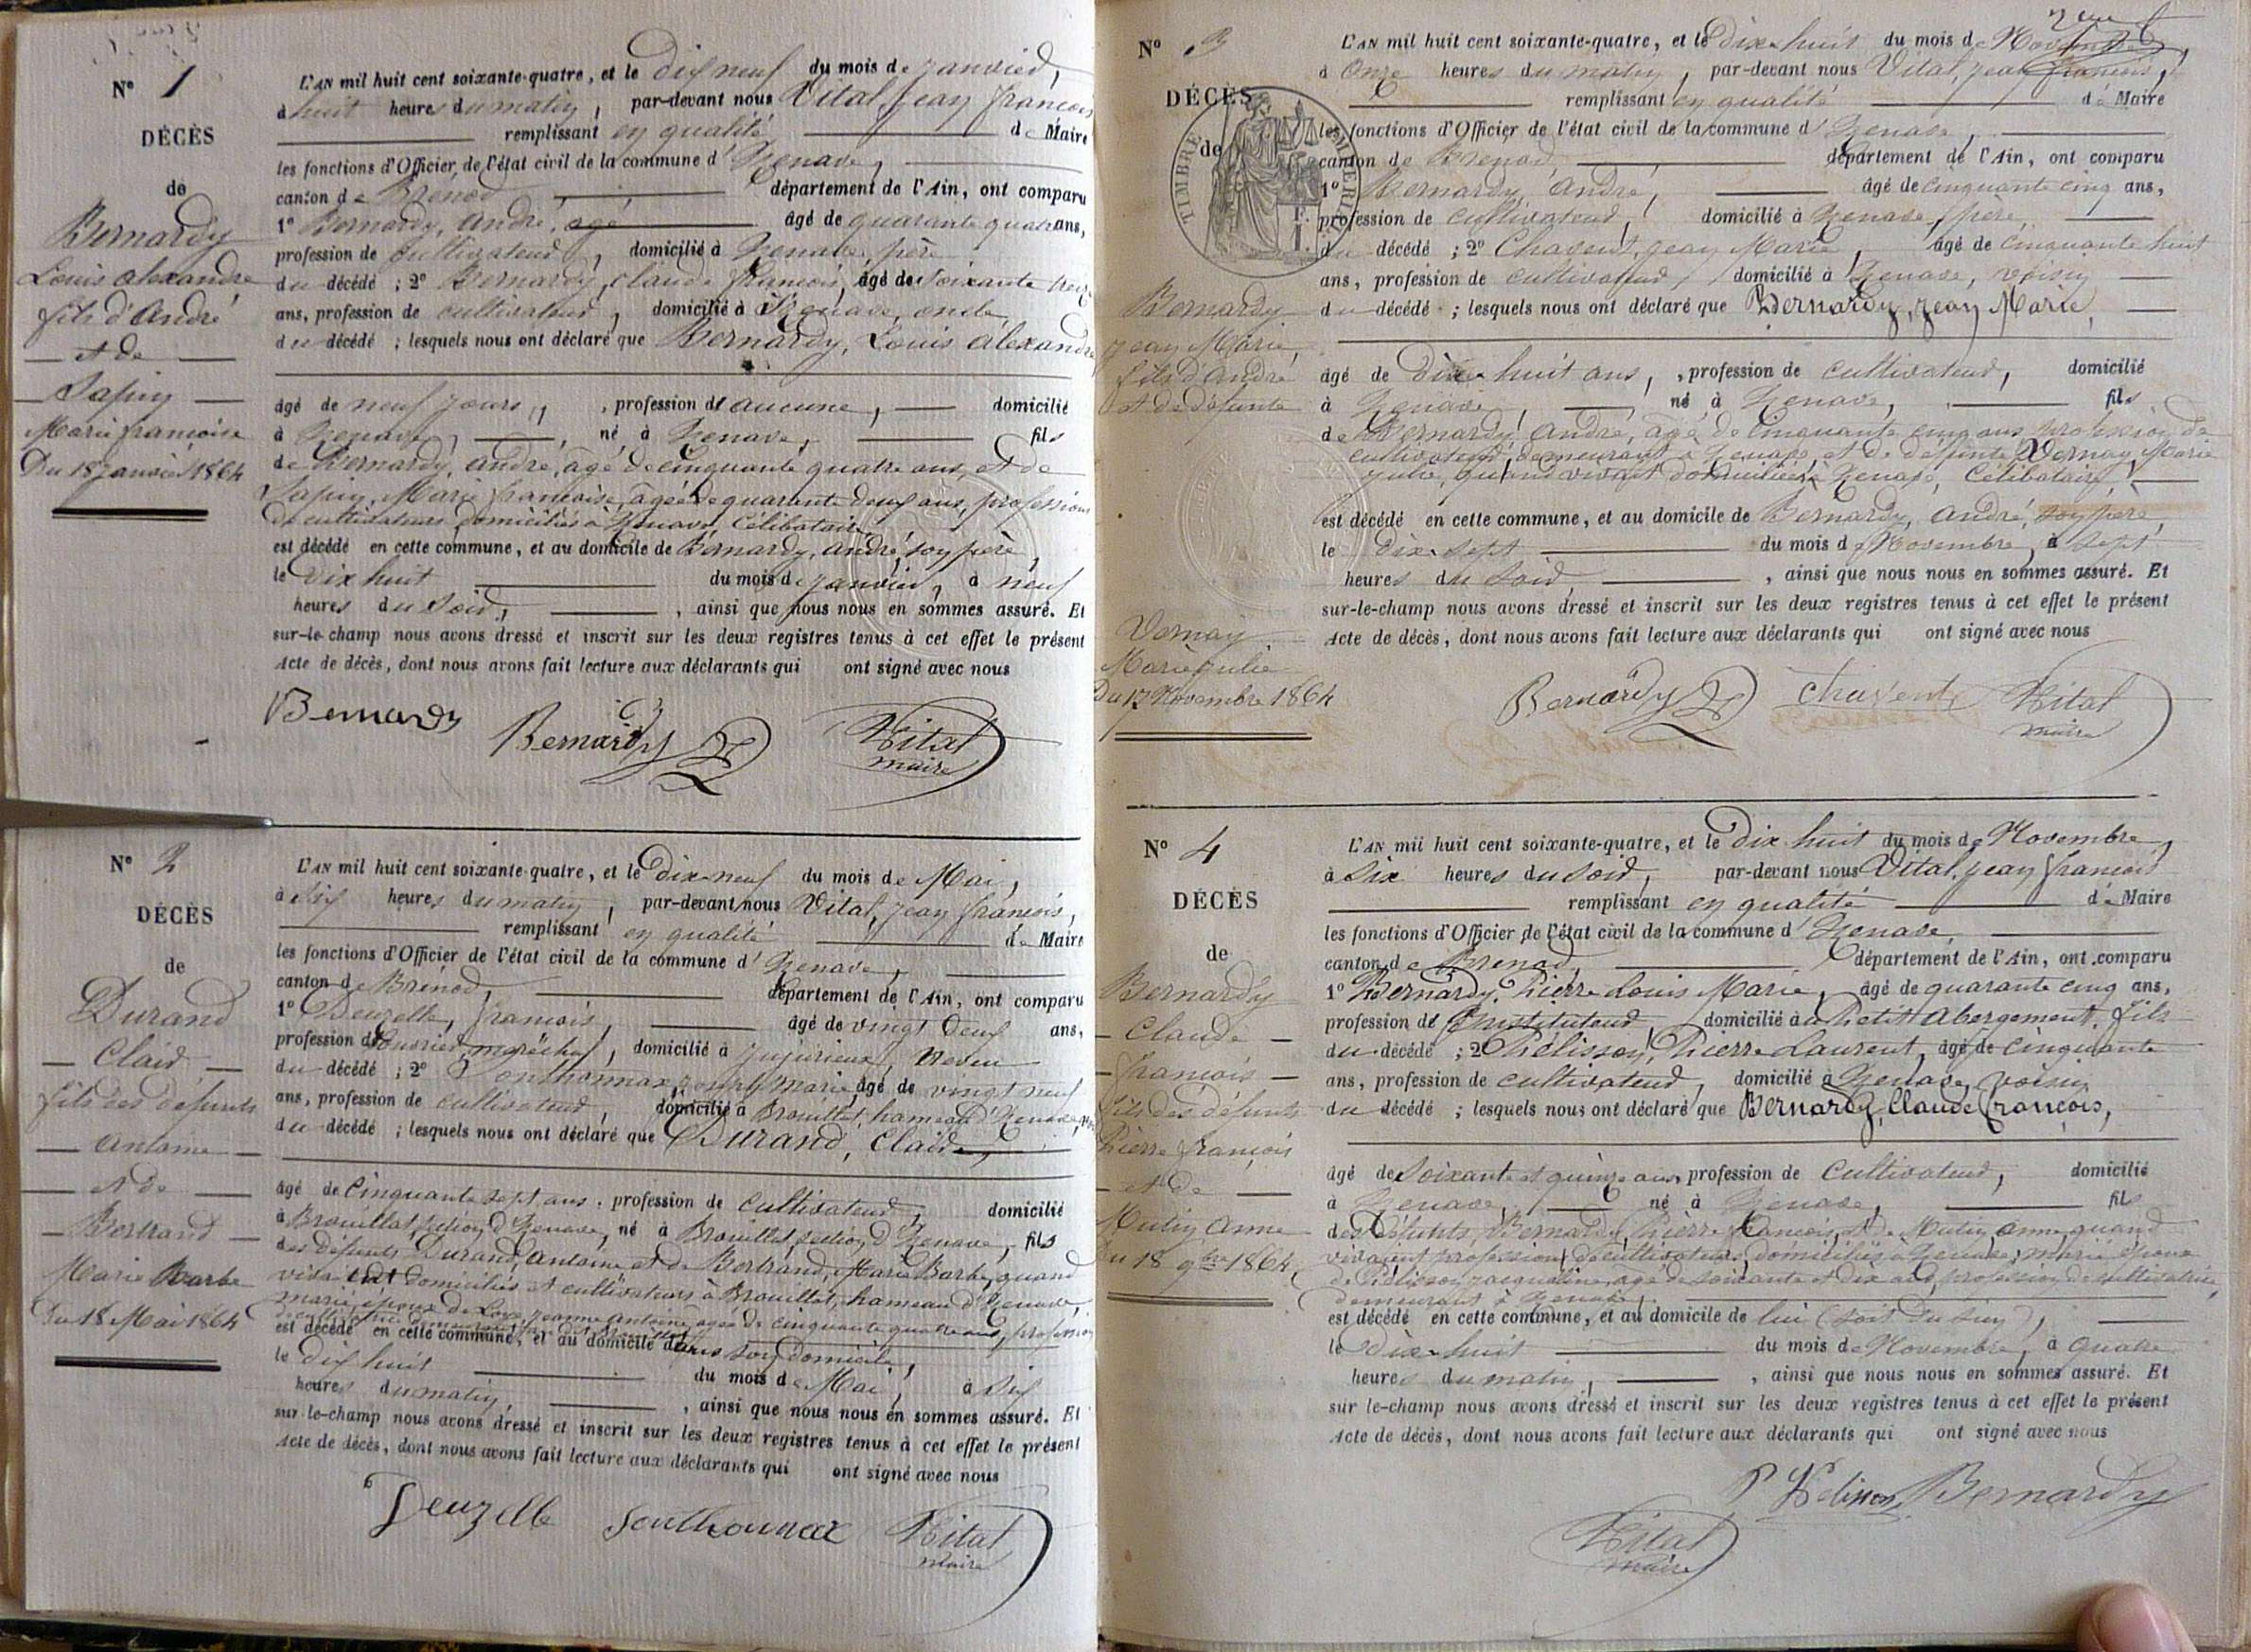 N° 1
DÉCÈS
de
Bernardy
Louis alexandre
fils d'André
et de
Sapin
Marie françoise
Du 18 janvier 1864
L'AN mil huit cent soixante-quatre, et le Dix neuf du mois de janvier,
à huit heures du matin, par-devant nous Vital, jean françois
remplissant en qualité de Maire
les fonctions d'Officier de l'état civil de la commune d'Izenave,
canton de Brenod département de l'Ain, ont comparu
1° Bernardy, andré, agé âgé de quarante quatre ans,
profession de cultivateur, domicilié à Izenave, père
du décédé ; 2° Bernardy, claude françois, âgé de soixante treize
ans, profession de cultivateur, domicilié à Izenave, oncle
du décédé ; lesquels nous ont déclaré que Bernardy, Louis alexandre
âgé de neuf jours, profession de aucune, domicilié
à Izenave, né à Izenave, fils
de Bernardy, andré, âgé de cinquante quatre ans, et de
Sapin, Marie françoise, âgée de quarante deux ans, profession
de cultivateurs domiciliés à Izenave, Célibataire,
est décédé en cette commune, et au domicile de Bernardy, andré, son père,
le Dix huit du mois de janvier, à neuf
heures du soir, ainsi que nous nous en sommes assuré. Et
sur-le-champ nous avons dressé et inscrit sur les deux registres tenus à cet effet le présent
Acte de décès, dont nous avons fait lecture aux déclarants qui ont signé avec nous
Bernardy Bernardy Vital
maire
N° 2
DÉCÈS
de
Durand
Clair
fils des défunts
antoine
et de
Bertrand
Marie Barbe
Du 18 Mai 1864
L'AN mil huit cent soixante-quatre, et le Dix-neuf du mois de Mai,
à dix heures du matin, par-devant nous Vital, jean françois,
remplissant en qualité de Maire
les fonctions d'Officier de l'état civil de la commune d'Izenave,
canton de Brénod, département de l'Ain, ont comparu
1° Deuzelle, françois, âgé de vingt deux ans,
profession d'ouvrier maréchal, domicilié à jujurieux, neveu
du décédé ; 2° Sonthonnax, marie, âgé de vingt neuf
ans, profession de cultivateur, domicilié à Brouillat, hameau d'Izenave,
du décédé ; lesquels nous ont déclaré que Durand, Clair,
âgé de cinquante sept ans, profession de cultivateur, domicilié
à Brouillat, section d'Izenave, né à Brouillat, section d'Izenave, fils
des défunts Durand, antoine et de Bertrand, Marie Barbe, quand
vivaient domiciliés et cultivateurs à Brouillat, hameau d'Izenave,
marié, époux de jeanne antoine, agée de cinquante quatre ans, profession
de cultivatrice demeurant
est décédé en cette commune, et au domicile dans son domicile,
le dix huit du mois de Mai, à six
heures du matin, ainsi que nous nous en sommes assuré. Et
sur-le-champ nous avons dressé et inscrit sur les deux registres tenus à cet effet le présent
Acte de décès, dont nous avons fait lecture aux déclarants qui ont signé avec nous
Deuzelle Sonthonnax Vital
maire
N° 3
DÉCÈS
de
Bernardy
jean Marie,
fils d'andré
et de défunte
Vernay
Marie julie
Du 17 Novembre 1864
TIMBRE
L'AN mil huit cent soixante-quatre, et le Dix-huit du mois de Novembre,
à Onze heures du matin, par-devant nous Vital, jean françois,
remplissant en qualité de Maire
les fonctions d'Officier de l'état civil de la commune d'Izenave,
canton de Brenod, département de l'Ain, ont comparu
1° Bernardy, André, âgé de cinquante cinq ans,
profession de cultivateur, domicilié à Izenave, père
du décédé ; 2° Chavent, jean Marie, âgé de cinquante huit
ans, profession de cultivateur, domicilié à Izenave, voisin
du décédé ; lesquels nous ont déclaré que Bernardy, jean Marie,
âgé de Dix-huit ans, profession de cultivateur, domicilié
à Izenave, né à Izenave, fils
de Bernardy, André, âgé de cinquante cinq ans profession de
cultivateur, demeurant à Izenave, et de défunte Vernay Marie
julie, quand vivait domiciliée à Izenave, Célibataire,
est décédé en cette commune, et au domicile de Bernardy, André, son père,
le dix-sept du mois de Novembre, à sept
heures du soir, ainsi que nous nous en sommes assuré. Et
sur-le-champ nous avons dressé et inscrit sur les deux registres tenus à cet effet le présent
Acte de décès, dont nous avons fait lecture aux déclarants qui ont signé avec nous
Bernardy Chavent Vital
maire
N° 4
DÉCÈS
de
Bernardy
Claude
françois
fils des défunts
Pierre françois
et de
Mutin Anne
Du 18 9bre 1864
L'AN mil huit cent soixante-quatre, et le Dix huit du mois de Novembre,
à Six heures du soir, par-devant nous Vital, jean françois
remplissant en qualité de Maire
les fonctions d'Officier de l'état civil de la commune d'Izenave,
canton de Brenod, département de l'Ain, ont comparu
1° Bernardy, Pierre Louis Marie, âgé de quarante cinq ans,
profession d'Instituteur, domicilié au Petit Abergement, fils
du décédé ; 2° Pélisson, Pierre Laurent, âgé de cinquante
ans, profession de cultivateur, domicilié à Izenave, voisin
du décédé ; lesquels nous ont déclaré que Bernardy, Claude françois,
âgé de soixante et quinze ans, profession de cultivateur, domicilié
à Izenave, né à Izenave, fils
des défunts, Bernardy, Pierre françois, et de Mutin anne, quand
vivaient profession de cultivateurs, domiciliés à Izenave, marié époux
de Pélisson jacqueline, agé de soixante et dix ans, profession de cultivatrice,
demeurant à Izenave,
est décédé en cette commune, et au domicile de lui (soit du sien),
le Dix-huit du mois de Novembre, à quatre
heures du matin, ainsi que nous nous en sommes assuré. Et
sur le-champ nous avons dressé et inscrit sur les deux registres tenus à cet effet le présent
Acte de décès, dont nous avons fait lecture aux déclarants qui ont signé avec nous
P Pélisson Bernardy
Vital
maire